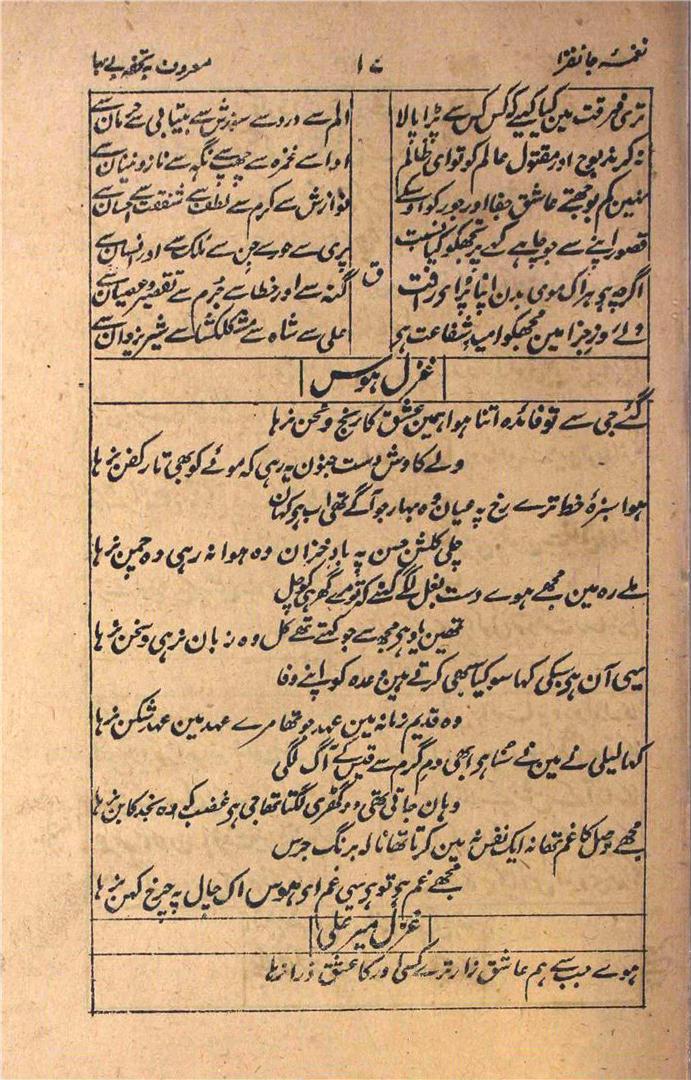 نغمۂ جانفزا ۱۷ معروف بہ تحفہ بے بہا
تری فرقت مین کیا کہیے کہ کس کس سے پڑا پالا الم سے درد سے سوزش سے بیتابی سے حرمان سے
نہ کر مذبوح اور مقتول عالم کو تو ای ظالم ادا سے غمزہ سے چھپ سے نگہ سے ناز و میان سے
نہین کم بوجھتے عاشق جفا اور جور کو اوسکے نوازش سے کرم سے لطف سے شفقت سے احسان سے
قصور اپنے سے جو چاہے کہے پر تجھکو کیا نسبت پری سے حور سے جن سے ملک سے اور انسان سے
ق
اگرچہ ہی ہر اک موی بدن اپنا پُر ای رافت گنہ سے اور خطا سے جرم سے تقصیر و عصیان سے
ولے روز جزا مین مجھکو امید شفاعت ہی علی سے شاہ سے مشکلکشا سے شیر یزدان سے
غزل ہوس
گئے جی سے تو فائدہ اتنا ہوا ہمین عشق کا رنج و محن نرہا
ولے کاوش دست جنون یہ رہی کہ موئے کو بھی تار کفن نرہا
ہوا سبزۂ خط ترے رخ پہ عیان وہ بہار جو آگے تھی اب ہی کہان
چلی گلشن حسن پہ باد خزان وہ ہوا نہ رہی وہ چمن نرہا
ملے رہ مین مجھے ہوے دست بغل لگے کہنے کہ تو مرے گھر ہی کو چل
تمھین یاد ہی مجھ سے جو کہتے تھے کل وہ زبان نرہی وہ سخن نرہا
یہی آن ہی سبکی کہا سو کیا سبھی کرتے ہین وعدہ کو اپنے وفا
وہ قدیم زمانہ مین عہد جو تھا مرے عہد مین عہد شکن نرہا
کہا لیلی نے مین نے سنا ہی ابھی دم گرم سے قیس کے آگ لگی
وہان جاتی تھی دو گھڑی لگتا تھا جی ہی غضب کہ وہ نجد کا بن نرہا
مجھے وصل کا غم تھا نہ ایک نفس غم مین کرتا تھا نالہ برنگ جرس
مجھے غم ہی تو ہی یہی غم ای ہوس اک حال پہ چرخ کہن نرہا
غزل میر علی
ہوے جب سے ہم عاشق زار ترے کسی اور کا عشق ذرا نرہا